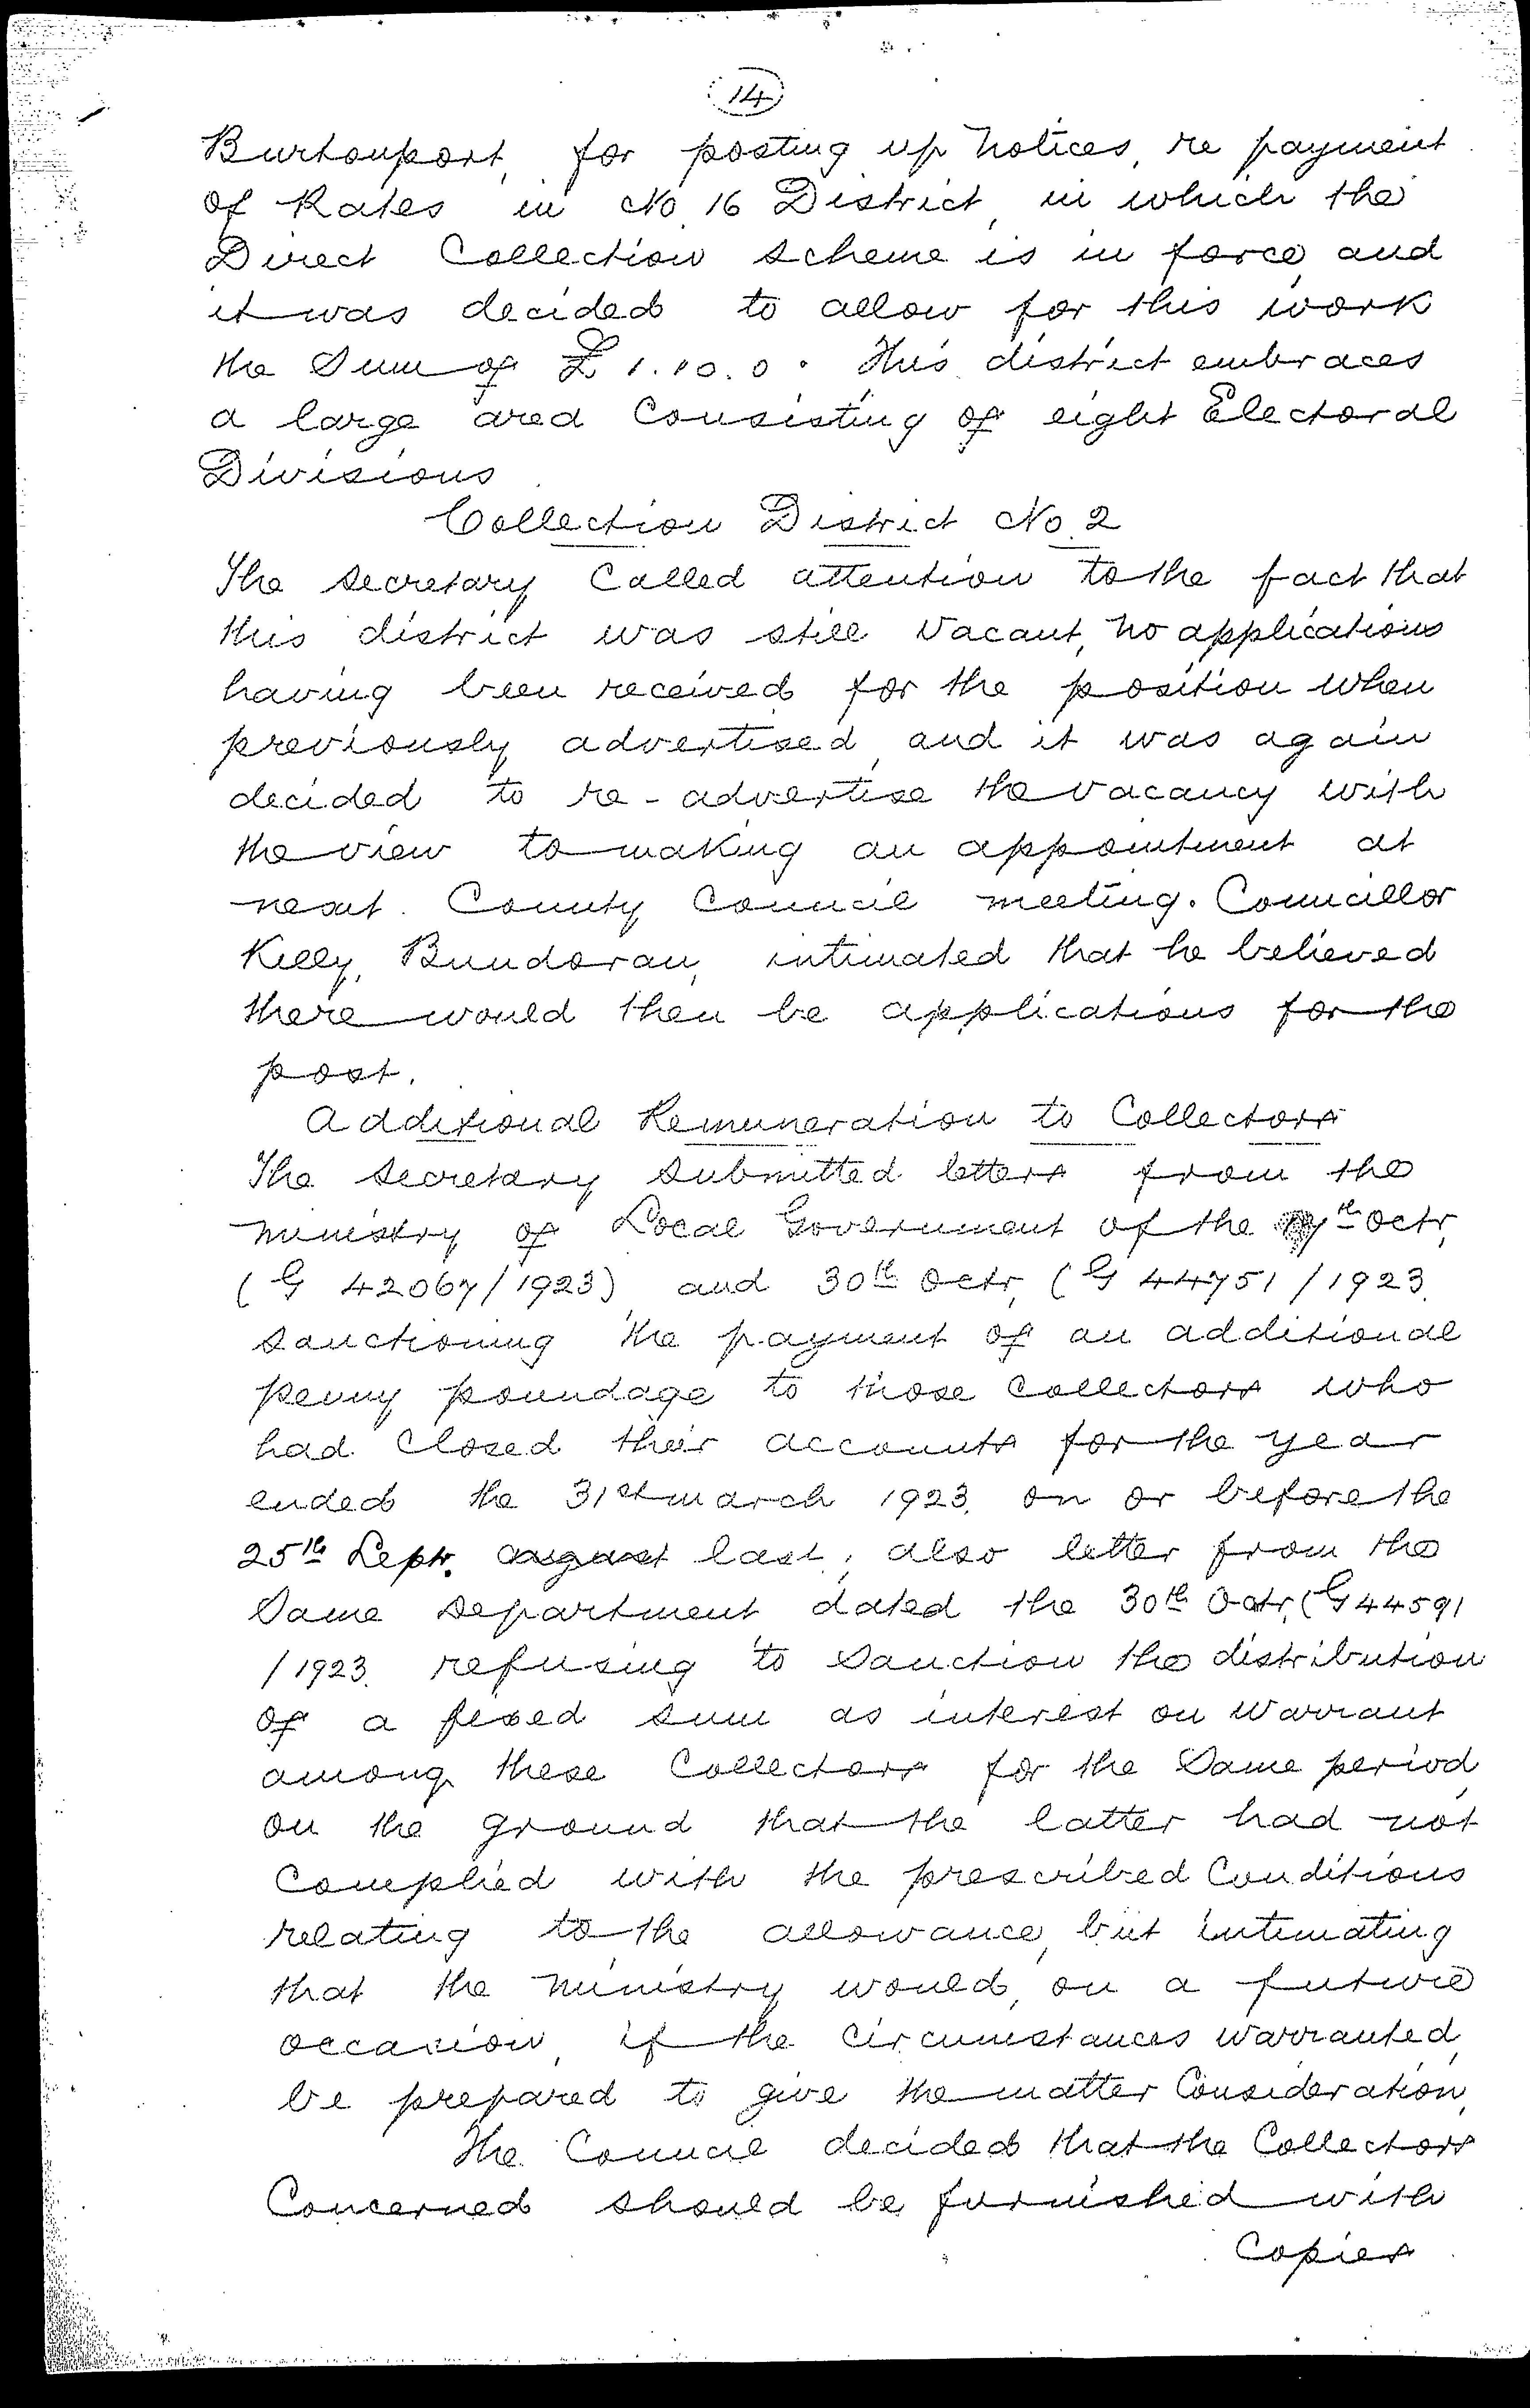 14
Burtonport, for posting up notices, re payment
of Rates in No 16 District, in which the
Direct Collection scheme is in force, and
it was decided to allow for this work
the sum of £1.10.0. This district embraces
a large area consisting of eight Electoral
Divisions
Collection District No. 2
The Secretary called attention to the fact that
this district was still vacant, no applications
having been received for the position when
previously advertised, and it was again
decided to re-advertise the vacancy with
the view to making an appointment at
next County Council meeting. Councillor
Kelly, Bundoran, intimated that he believed
there would then be applications for the
post.
Additional Remuneration to Collectors
The Secretary submitted letters from the
Ministry of Local Government of the th Octr,
(G 42067/1923) and 30th Octr, (G 44751/1923
sanctioning the payment of an additional
penny poundage to those collectors who
had closed their accounts for the year
ended the 31st March 1923, on or before the
25th Septr. august last; also letter from the
same department dated the 30th Octr, (G 44591
/1923. refusing to sanction the distribution
of a fixed sum as interest on Warrant
among these Collectors for the same period,
on the ground that the latter had not
complied with the prescribed conditions
relating to the allowance, but intimating
that the Ministry would, on a future
occasion, if the circumstances warranted,
be prepared to give the matter consideration.
The Council decided that the Collectors
concerned should be furnished with
copies